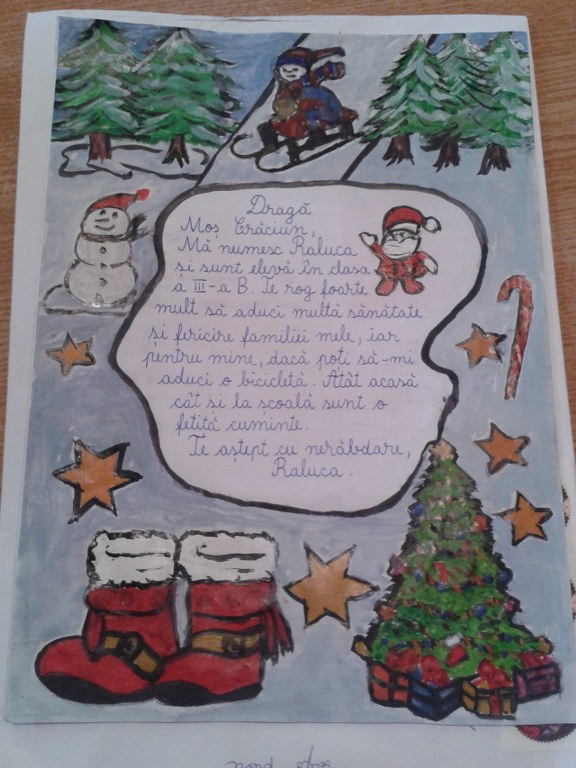 Dragă
Moș Crăciun,
Mă numesc Raluca
și sunt elevă în clasa
a III-a B. Te rog foarte
mult să aduci multă sănătate
și fericire familiei mele, iar
pentru mine, dacă poți să-mi
aduci o bicicletă. Atât acasă
cât și la școală sunt o
fetiță cuminte.
Te aștept cu nerăbdare,
Raluca.